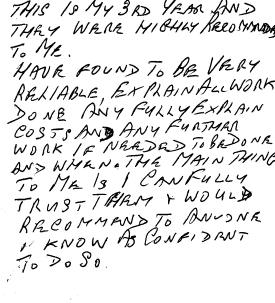 THIS IS MY 3RD YEAR AND
THEY WERE HIGHLY RECOMMENDED
TO ME.
HAVE FOUND TO BE VERY
RELIABLE, EXPLAIN ALL WORK
DONE ANY FULLY EXPLAIN
COSTS AND ANY FURTHER
WORK IF NEEDED TO BE DONE
AND WHEN. THE MAIN THING
TO ME IS I CAN FULLY
TRUST THEM & WOULD
RECOMMEND TO ANYONE
I KNOW AS CONFIDENT
TO DO SO.